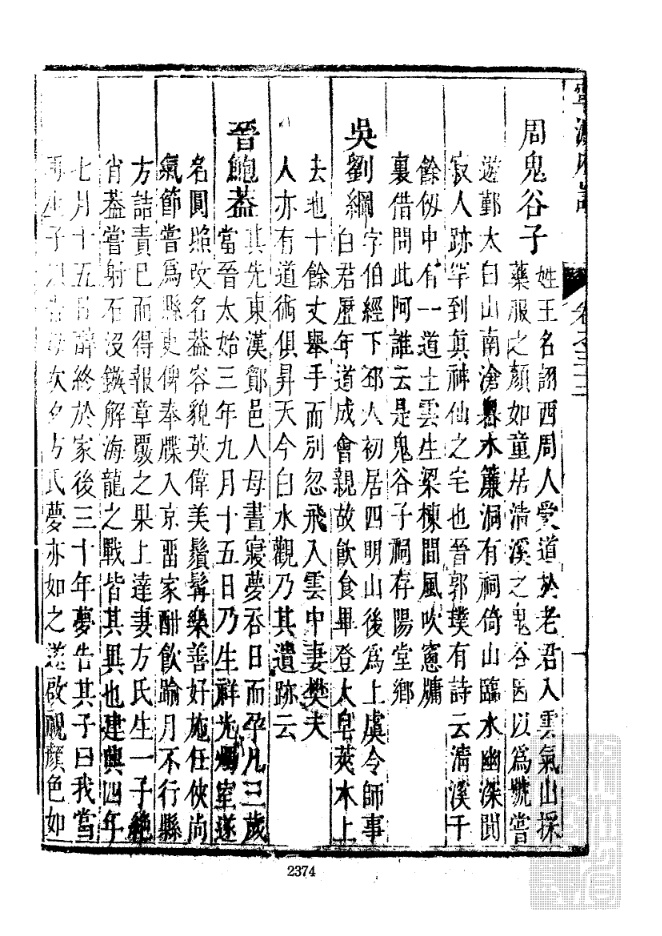 寧波府志
卷之三十二
周鬼谷子
姓王名詡西周人受道於老君入雲氣山採
藥服之顏如童居清溪之鬼谷因以爲號嘗
遊鄞太白山南滄 水簾洞有祠倚山臨水幽深閴
寂人跡罕到眞神仙之宅也晉郭璞有詩云清溪千
餘仭中有一道士雲生梁棟間風吹窻牖
裏借問此阿誰云是鬼谷子祠存陽堂鄉
吳劉綱
字伯經下邳人初居四明山後爲上虞令師事
白君歷年道成會親故飲食畢登大皂莢木上
去地十餘丈舉手而别忽飛入雲中妻樊夫
人亦有道術俱昇天今白水觀乃其遺跡云
晉鮑葢
其先東漢鄮邑人母晝寢夢吞日而孕凡三歲
當晉太始三年九月十五日乃生祥光燭室遂
名圓照改名葢容貌英偉美鬚髯樂善好施任俠尚
氣節嘗爲縣吏俾奉牒入京畱家酣飲踰月不行縣
方詰責已而得報章覈之果上達妻方氏生一子絶
肖葢嘗射石没鏃解海龍之戰皆其異也建興四年
七月十五日辭終於家後三十年夢告其子曰我當
再生子 次夕方氏夢亦如之遂啟視顏色如
2374